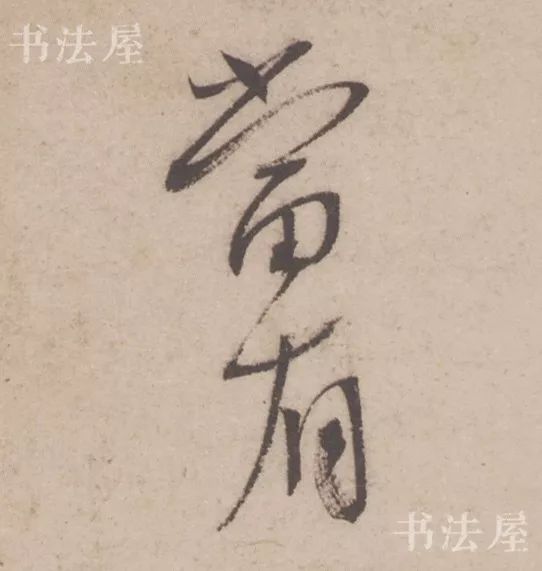 书法屋
當有
书法屋